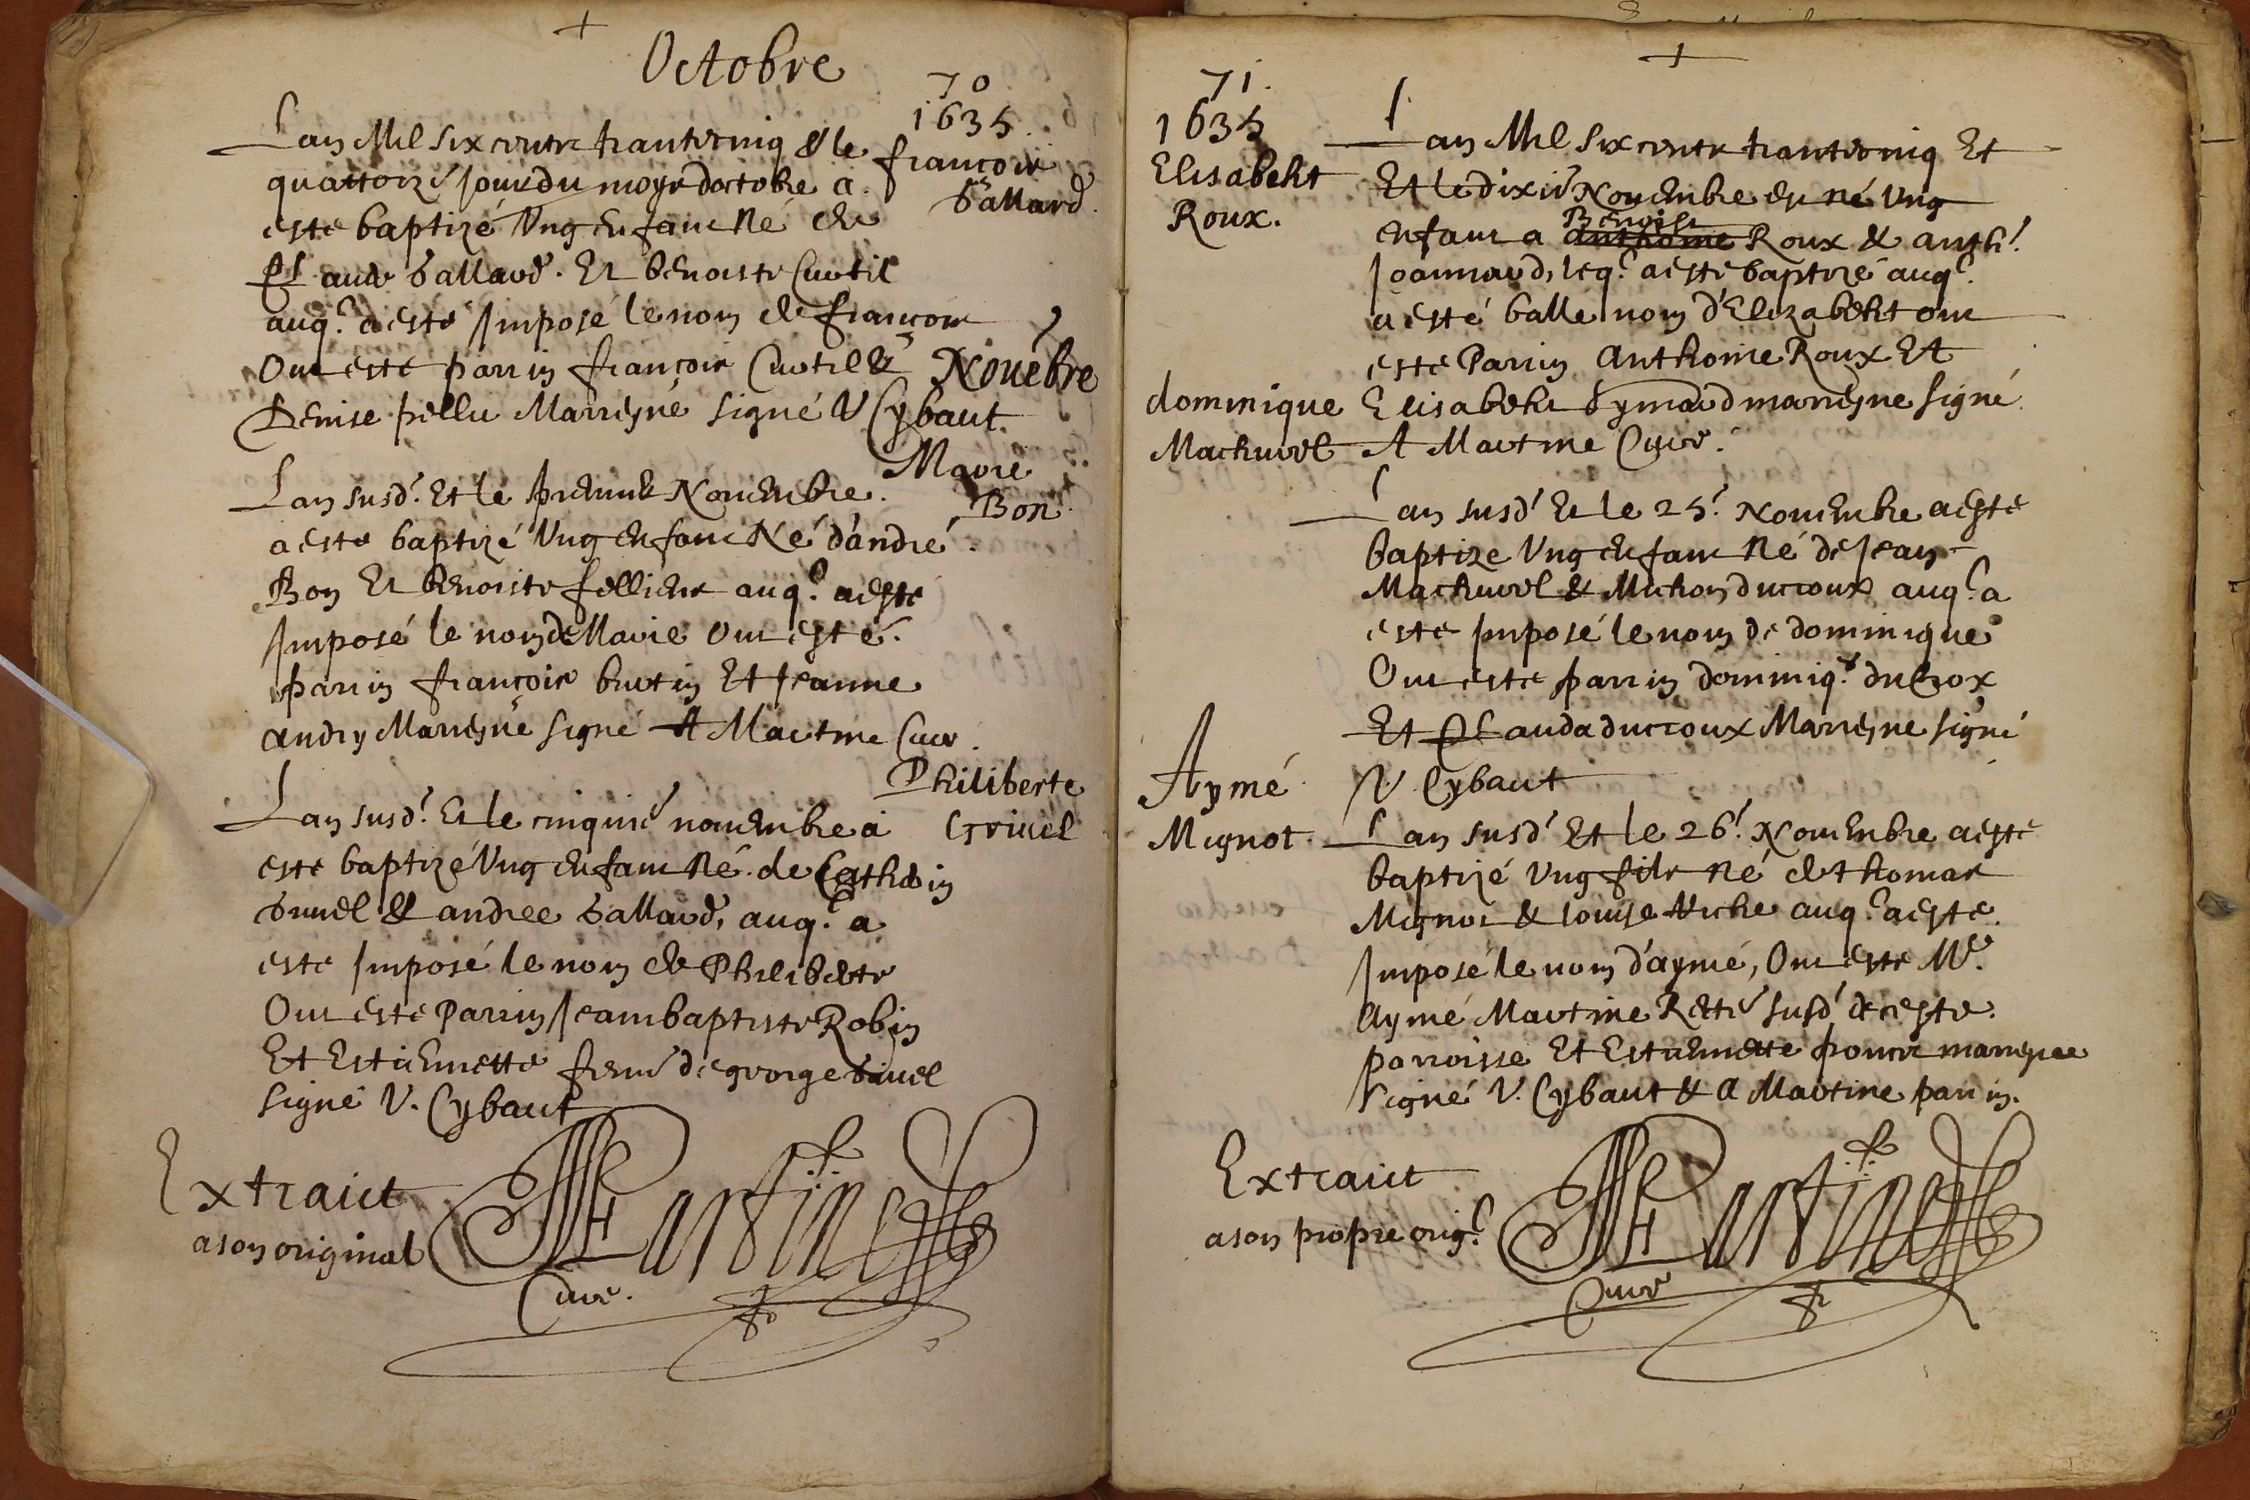 Octobre
70
1635
françois
ballard
Lan Mil six centz trantecinq & le
quattorze Jour du moys doctobre a
este baptizé Ung enfant Né de
Claude ballard. Et benoiste Curtil
auq.l a esté Imposé le nom de françois
Ont este parrin françois Curtil &
Denise pellu Marreyne signé V Cybaut
Nouēbre
Marie
Bon
Lan susd.t Et le premier Nouembre
a este baptizé Ung enfant Né d'andré
Bon Et benoiste fellier auq.l a este
Imposé le nom de Marie Ont esté
parrin françois butin Et Jeanne
andry Marreyne signé A Martine Curé
Philiberte
Griuel
Lan susd.t Et le cinquie nouembre a
este baptizé Ung enfant Né de
& andree ballard, auq.l a
este Imposé le nom de Philiberte
Ont este Parrin Jeambaptiste Robin
Et Estiennette feme de george
signé V. Cybaut
Extraict
a son original
Martine
Curé
71.
1635
Elisabeht
Roux.
Lan Mil six centz trantecinq Et
Et le dixie Nouembre est né Ung
Benoist
enfant a anthoine Roux & anth.
Joannard, leq.l a este baptizé auq.l
a esté balle nom d'Elizabeht ont
este Parrin Anthoine Roux Et
Elisabeht marreyne signé
A Martine Curé.
dominique
Machurel
Lan susd.t Et le 25.e Nouembre a este
baptize Ung enfant Né de Jean
Machurel & Michon duccoux auq.l a
este Imposé le nom de dominique
Ont este parrin dominiq.e ducrox
Et Clauda duccoux Marreyne signé
V Cybaut
Aymé
Mignot
Lan susd.t Et le 26.e Nouembre a este
baptizé Ung filz Né de thomas
Mignot & louise auq.l a este
Imposé le nom d'aymé, Ont este M.e
Aymé Martine susd.t de ceste
parroisse Et Estiennette marreyne
signé V. Cybaut & A Martine parrin.
Extraict
a son propre orig.l
Martine
Curé